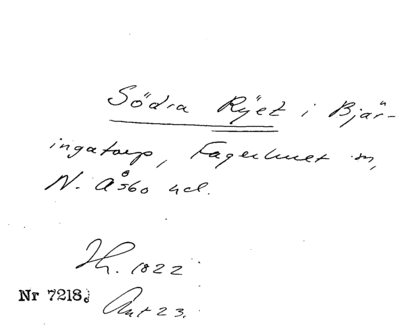 Södra Ryet i Bjär-
ingatorp, Fagerhult sn,
N. Åsbo hd.
Jh. 1822
Nr 7218.
Ant 23.